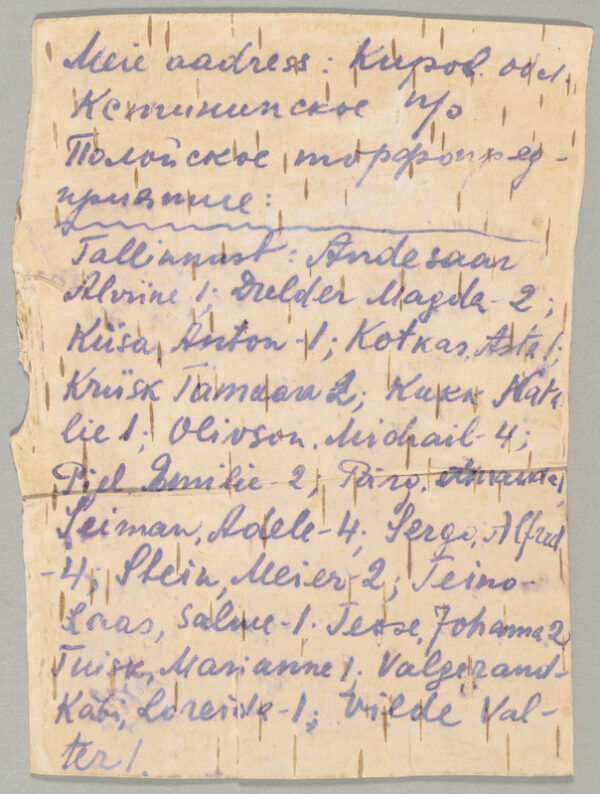 Meie aadress: Киров. обл.
Кстининское п/о
Полойское торфопред-
приятие:
Tallinnast: Andesaar
Alviine 1; Dulder Magda-2;
Kiisa, Anton-1; Kotkas, Asta 1;
Kriisk Tamaara 2; Kukk Nata
lie 1; Olivson, Michail-4;
Piel Emilie-2; Pärg, Amanda 1,
Seiman, Adele-4; Sergo, Alfred
-4; Stein, Meier-2; Teino-
Laas, Salme-1; Teose, Johanna 2
Tuisk, Marianne 1; Valgerand-
Kabi, Loreida-1; Vilde Val-
ter 1.